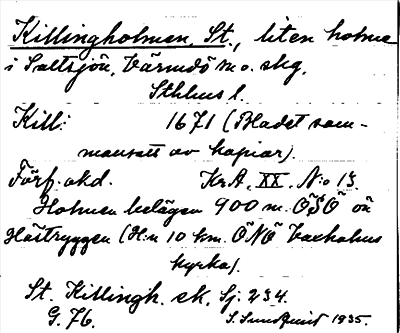 Killingholmen, St., liten holme
i Saltsjön, Värmdö m.o. skg,
Sthlms l.
Kill: 1671 (Bladet sam-
mansatt av kopior).
Förf. okd. Kr.A. XX. N:o 13.
Holmen belägen 900 m. ÖSÖ ön
Hästryggen (H:n 10 km. ÖNÖ Vaxholms
kyrka).
St. Killingh. sk. Sj. 234.
G. 76. S. Sundquist 1935.